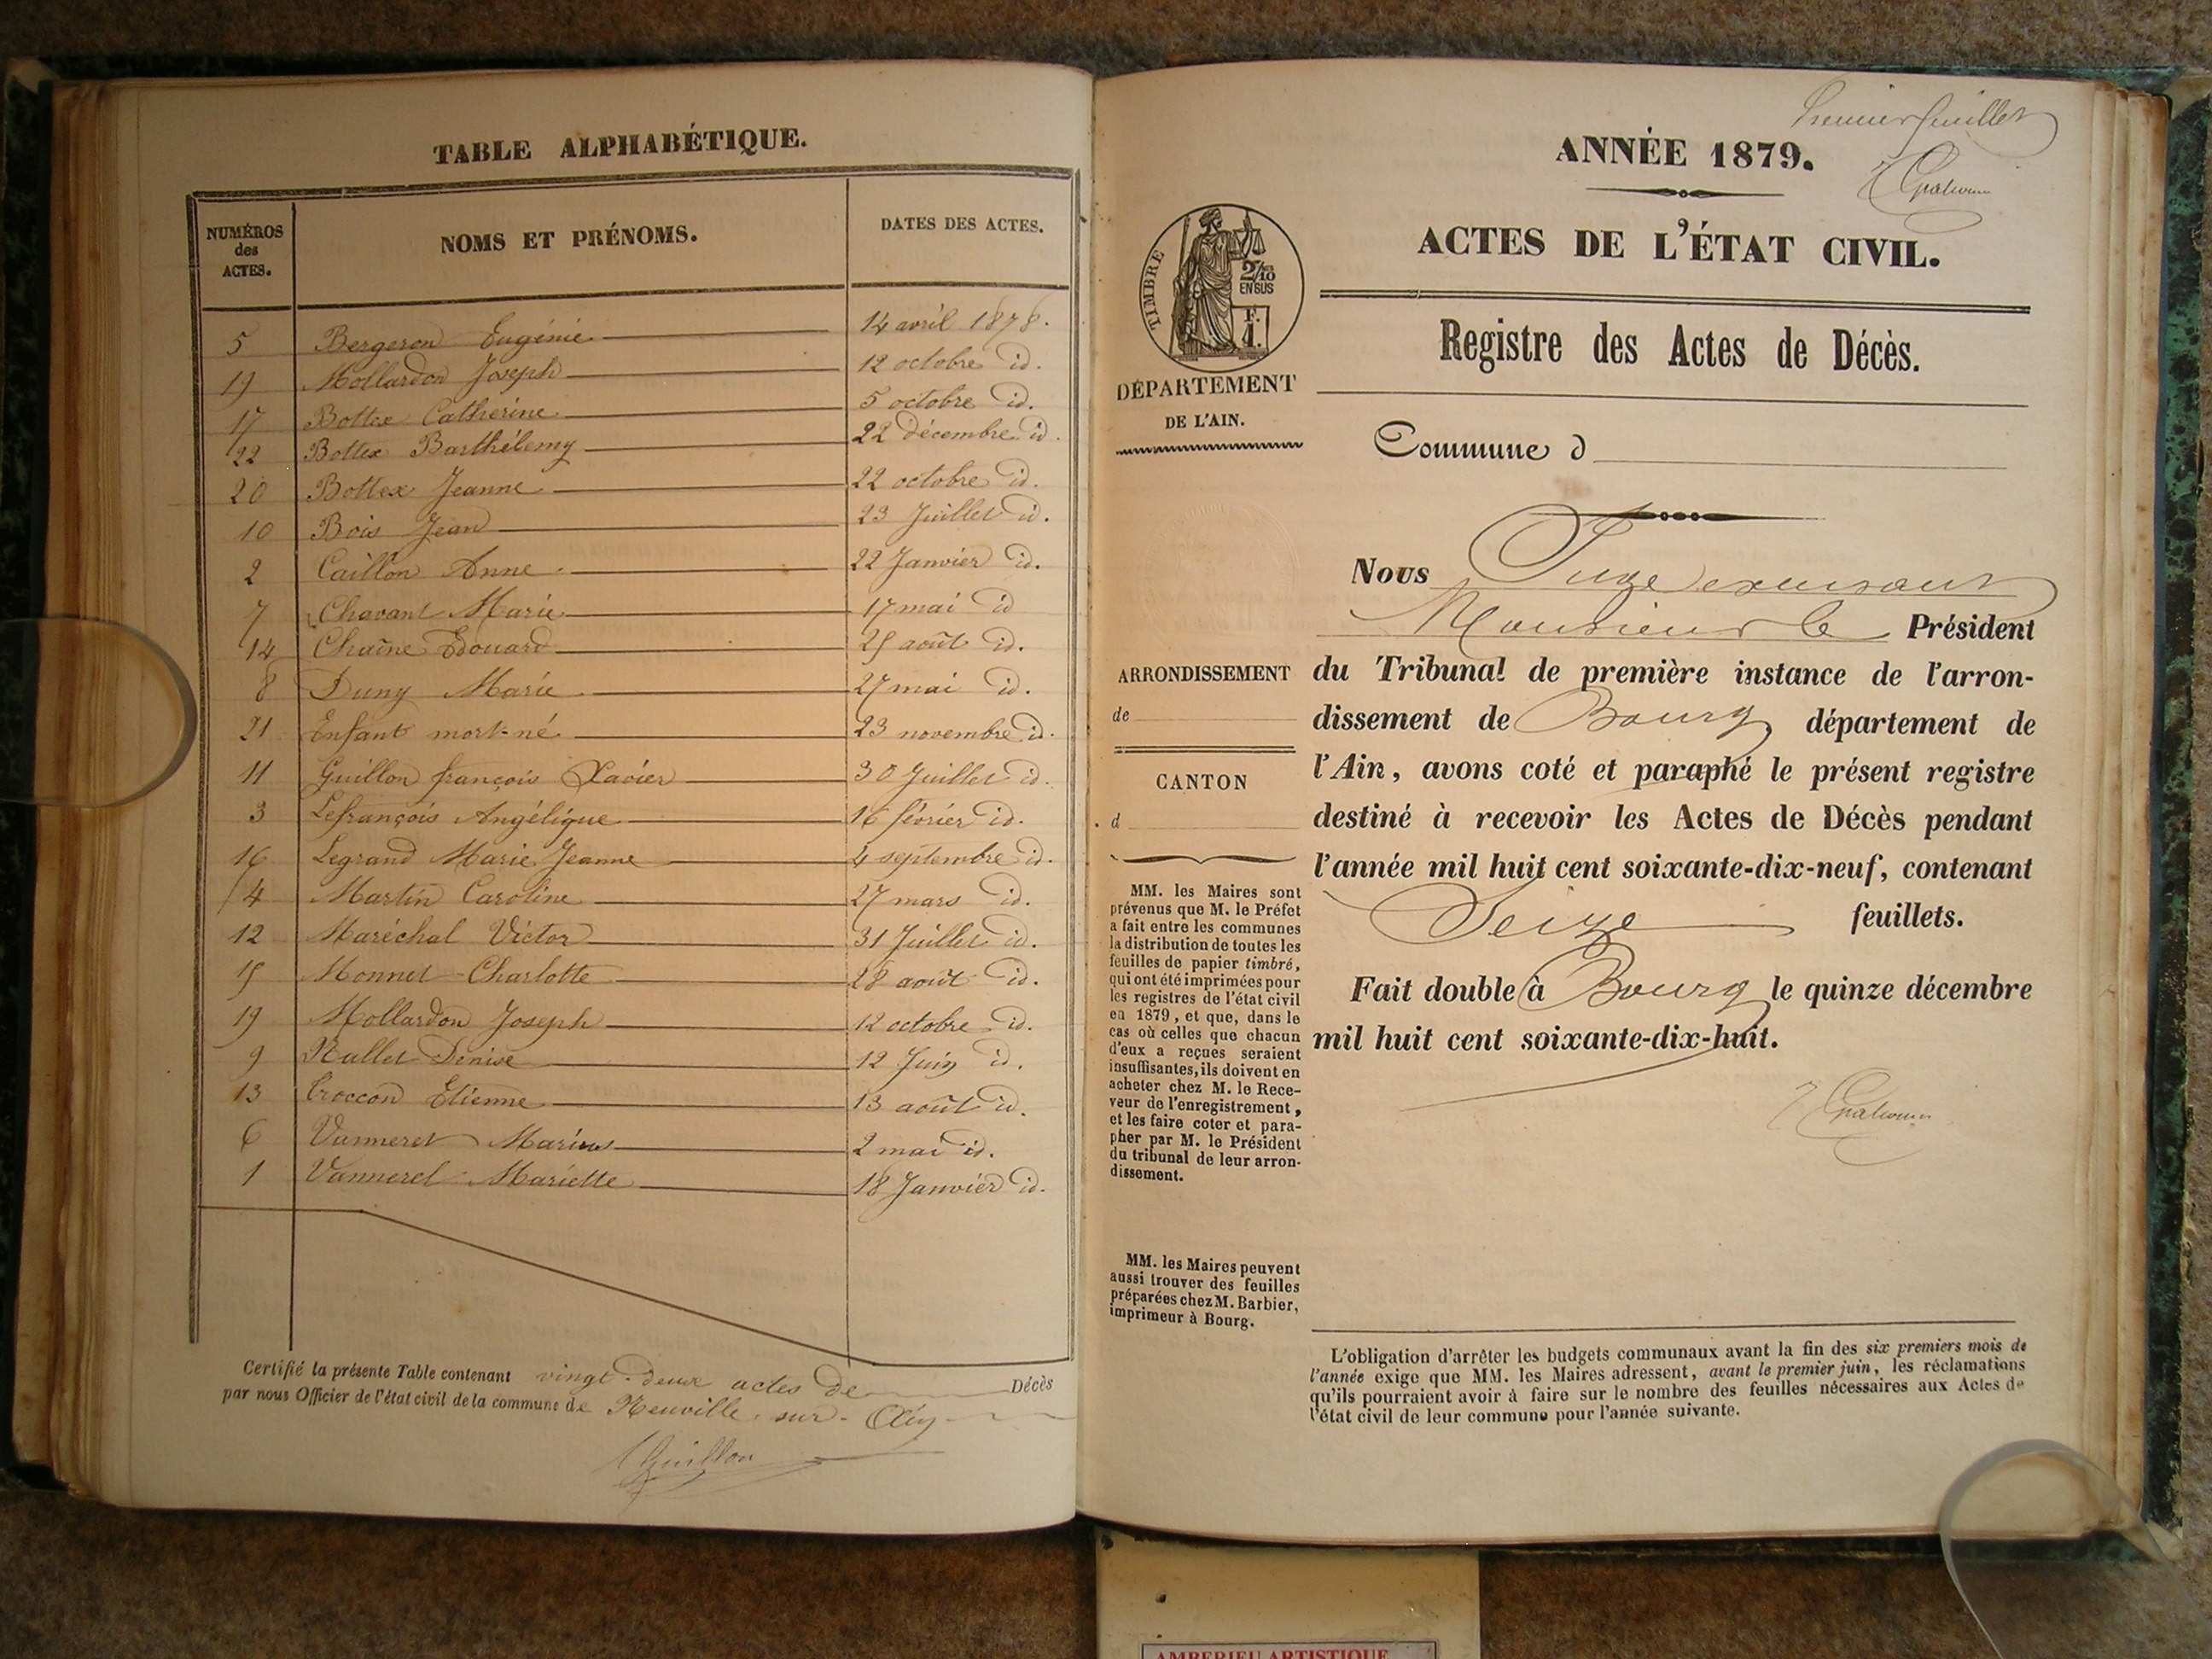 TABLE ALPHABÉTIQUE.
NUMÉROS des ACTES. NOMS ET PRÉNOMS. DATES DES ACTES.
5 Bergeron Eugénie 14 avril 1878.
19 Mollardon Joseph 12 octobre id.
17 Bottex Catherine 5 octobre id.
22 Bottex Barthélemy 22 décembre id.
20 Bottex Jeanne 22 octobre id.
10 Bois Jean 23 Juillet id.
2 Caillon Anne 22 Janvier id.
7 Chavant Marie 17 mai id
14 Chaîne Edouard 25 août id.
8 Duny Marie 27 mai id.
21 Enfant mort-né 23 novembre id.
11 Guillon françois Xavier 30 Juillet id.
3 Lefrançois Angélique 16 février id.
16 Legrand Marie Jeanne 4 septembre id.
4 Martin Caroline 27 mars id.
12 Maréchal Victor 31 Juillet id.
15 Monnet Charlotte 28 août id.
19 Mollardon Joseph 12 octobre id.
9 Nallet Denise 12 Juin id.
13 Croccon Etienne 13 août id.
6 Vanneret Marius 2 mai id.
1 Vanneret Mariette 18 Janvier id.
Certifié la présente Table contenant vingt-deux actes de Décès
par nous Officier de l'état civil de la commune de Neuville-sur-Ain
Guillon
Premier feuillet
ANNÉE 1879.
ACTES DE L'ÉTAT CIVIL.
TIMBRE
2/10
EN SUS
F.
1.
Registre des Actes de Décès.
DÉPARTEMENT
DE L'AIN.
Commune d
Nous Juge exerçant
Monsieur le Président
du Tribunal de première instance de l'arron-
dissement de Bourg département de
l'Ain, avons coté et paraphé le présent registre
destiné à recevoir les Actes de Décès pendant
l'année mil huit cent soixante-dix-neuf, contenant
Seize feuillets.
Fait double à Bourg le quinze décembre
mil huit cent soixante-dix-huit.
ARRONDISSEMENT
de
CANTON
d
MM. les Maires sont
prévenus que M. le Préfet
a fait entre les communes
la distribution de toutes les
feuilles de papier timbré,
qui ont été imprimées pour
les registres de l'état civil
en 1879, et que, dans le
cas où celles que chacun
d'eux a reçues seraient
insuffisantes, ils doivent en
acheter chez M. le Rece-
veur de l'enregistrement,
et les faire coter et para-
pher par M. le Président
du tribunal de leur arron-
dissement.
MM. les Maires peuvent
aussi trouver des feuilles
préparées chez M. Barbier,
imprimeur à Bourg.
L'obligation d'arrêter les budgets communaux avant la fin des six premiers mois de
l'année exige que MM. les Maires adressent, avant le premier juin, les réclamations
qu'ils pourraient avoir à faire sur le nombre des feuilles nécessaires aux Actes de
l'état civil de leur commune pour l'année suivante.
AMBERIEU ARTISTIQUE